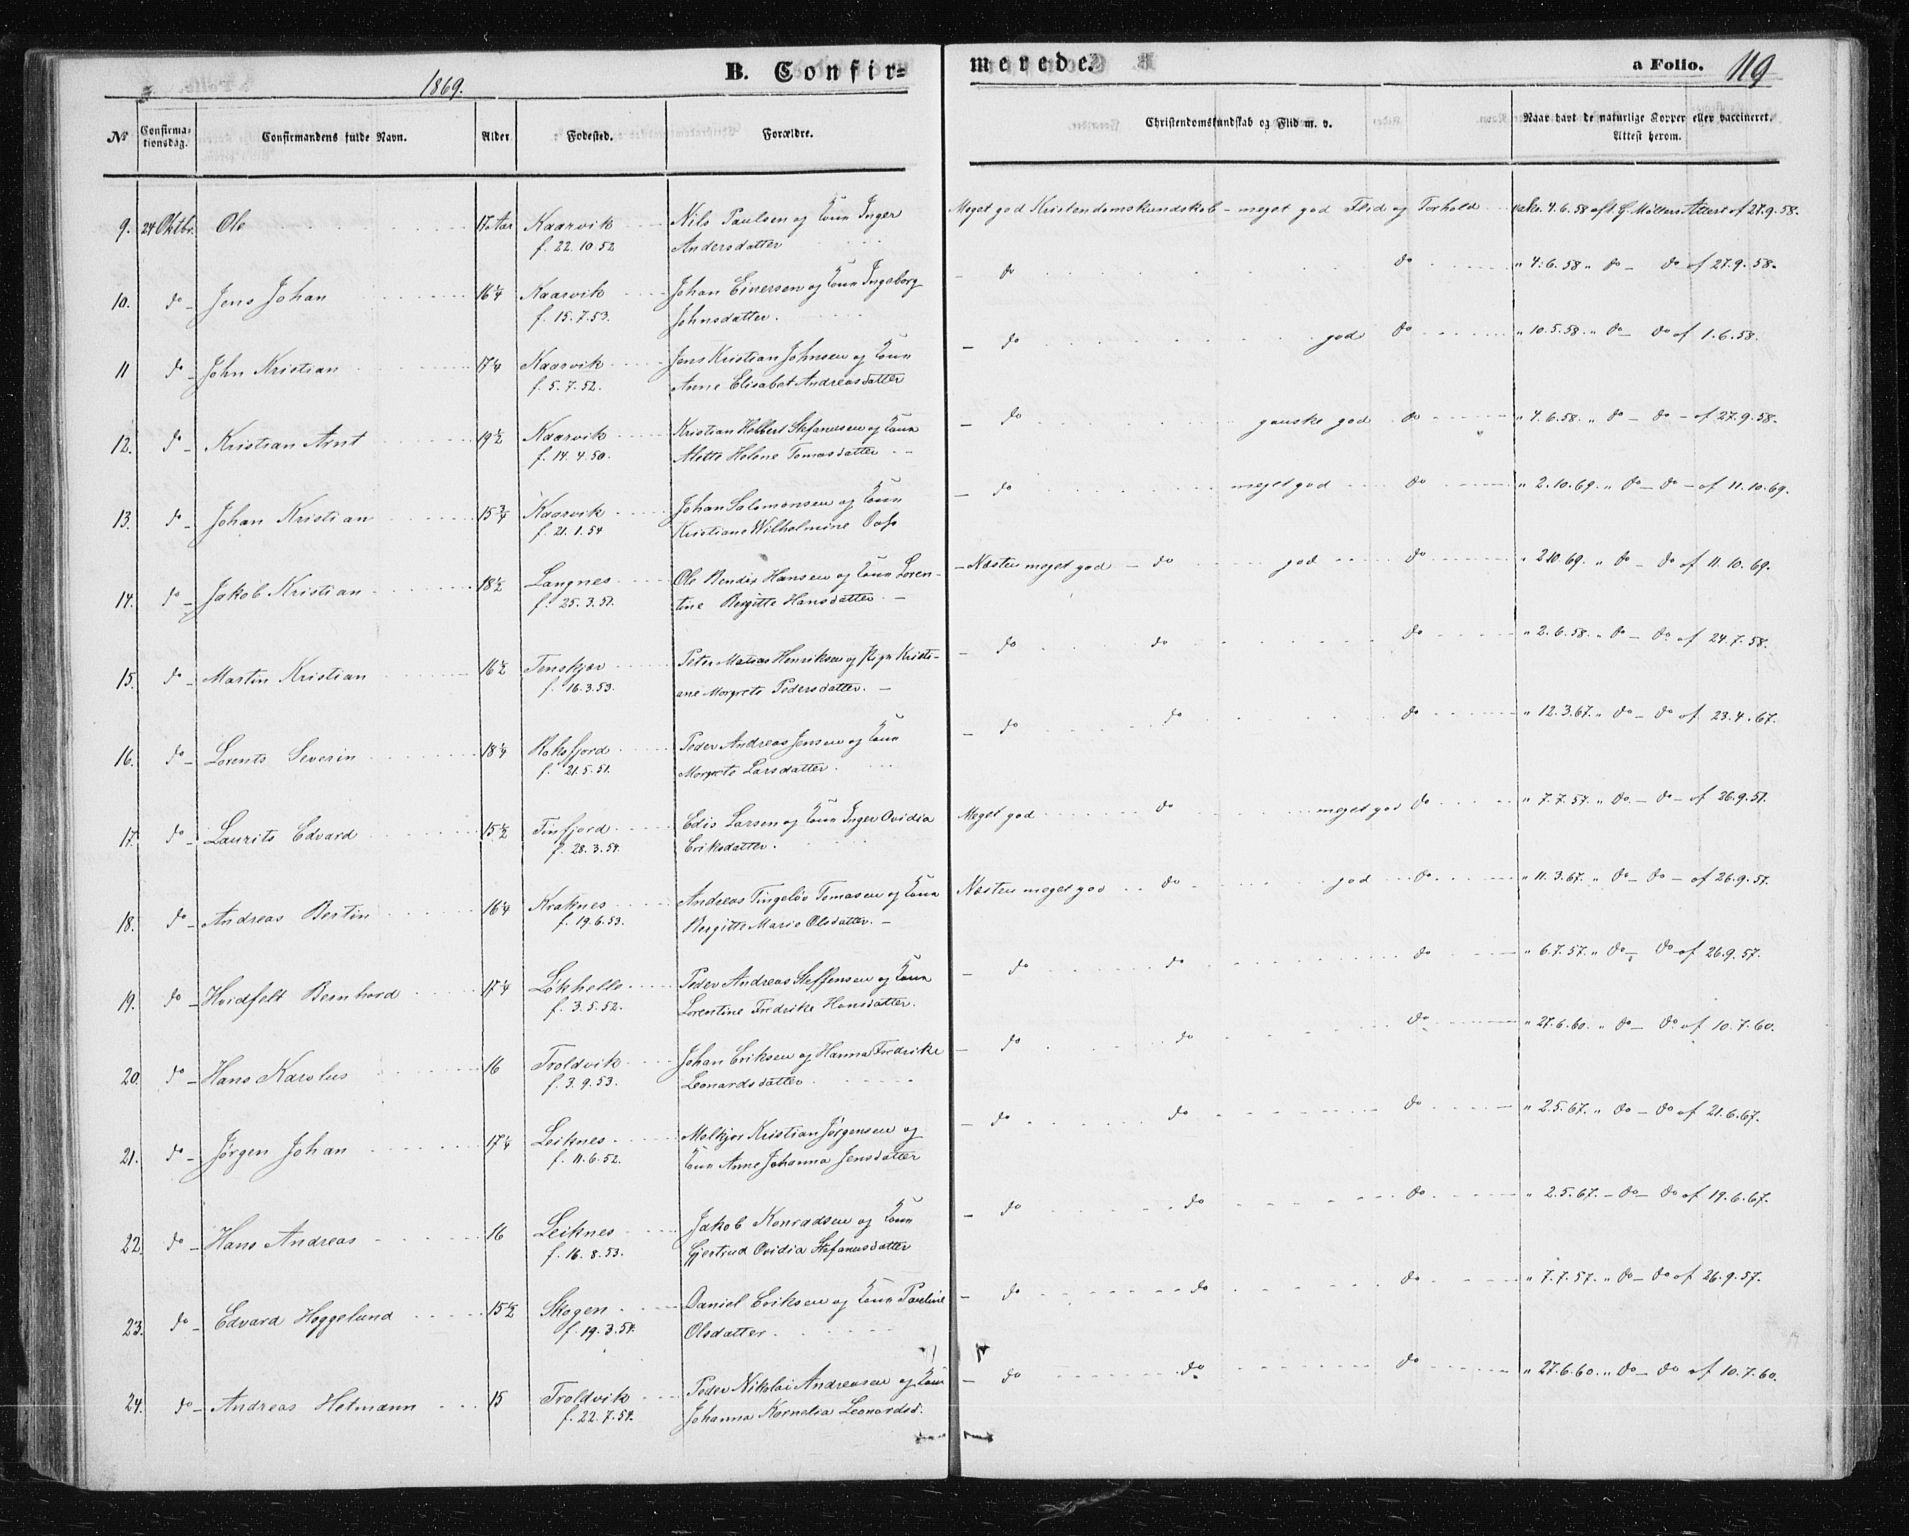 1869.
B. Confir=
merede.
a Folio. 119
No Confirma-tionsdag. Confirmandens fulde Navn. Alder Fødested. Forældre. Christendomskundskab og Flid m. v. Naar havt de naturlige Kopper eller vaccineret. Attest herom.
9. 24 Oktbr. Ole 17 Aar Kaarvik Nils Paulsen og Kone Inger Meget god Kristendomskundskab - meget god Flid og Forhold vakc. 4.6.58 aft. G. Møllers Attest af 27.9.58.
f. 22.10.52 Andersdatter
10. do - Jens Johan 16¼ Kaarvik Johan Einersen og Kone Ingeborg - do do " 4.6.58 " do - do af 27.9.58.
f. 15.7.53. Johnsdatter.
11 do - John Kristian 17¼ Kaarvik Jens Kristian Johnsen og Kone - do god do " 10.5.58. " do - do af 1.6.58.
f. 5.7.52. Anne Elisabet Andreasdatter
12. do - Kristian Arnt 19½ Kaarvik Kristian Holbert Stefanussen og Kone - do ganske god do " 4.6.58. " do - do - af 27.9.58.
f. 14.4.50. Mette Helene Tomasdatter
13. do - Johan Kristian 15¾ Kaarvik Johan Salomonsen og Kone - do meget god do " 2.10.69. " do - do - af 11.10.69.
f. 21.1.54 Kristiane Wilhelmine
14. do - Jakob Kristian 18½ Langnes Ole Bendix Hansen og Kone Loren- - Næsten meget god - do god do " 2.10.69. " do - do af 11.10.69.
f. 25.3.51. tine Bergitte Hansdatter. -
15. do - Martin Kristian 16½ Tenskjær Peter Matias Henriksen og Pign Kristi- - do do do " 2.6.58. " do - do af 24.7.58.
f. 16.3.53. ane Margrete Pedersdatter. -
16. do - Lorents Severin 18¼ Kokfjord Peder Andreas Jensen og Kone - do do do " 12.3.67. " do - do af 23.4.67.
f. 21.5.51. Margrete Larsdatter.
17. do - Laurits Edvard 15½ Finfjord Edis Larsen og Kone Inger Ovidia Meget god do meget god do " 7.7.57. " do - do - af 26.9.57.
f. 28.3.54. Eriksdatter.
18. do - Andreas Bertin 16¼ Kraknes Andreas Fingeløv Tomasen og Kone Næsten meget god do god do " 11.3.67. " do - do - af 26.9.57.
f. 19.6.53. Bergitte Marie Olsdatter. -
19. do - Hvidfelt Bernhard 17¼ Løkhelle Peder Andreas Steffensen og Kone - do do do " 6.7.57. " do - do - af 26.9.57.
f. 3.5.52. Lorentine Fredrike Hansdatter.
20. do - Hans Karolus 16 Troldvik Johan Eriksen og Hanna Fredrike - do do do " 27.6.60. " do - do af 10.7.60.
f. 3.9.53. Leonardsdatter
21. do - Jørgen Johan 17¼ Leiknes Melkjor Kristian Jørgensen og - do do do " 2.5.67. " do - do af 21.6.67.
f. 11.6.52. Kone Anne Johanna Jensdatter
22. do - Hans Andreas 16 Leiknes Jakob Konradsen og Kone - do do do " 2.5.67. - do - do af 19.6.67.
f. 16.8.53. Gjertrud Ovidia Stefanusdatter
23. do - Edvard Heggelund 15½ Skogen Daniel Eriksen og Kone Pauline - do do do " 7.7.57. " do - do af 26.9.57.
f. 19.3.54. Olsdatter
24. do - Andreas Hetmann 15 Troldvik Peder Nikolai Andreasen og Kone - do do do " 27.6.60. " do - do af 10.7.60.
f. 22.7.54. Johanna Kornelia Leonardsd.